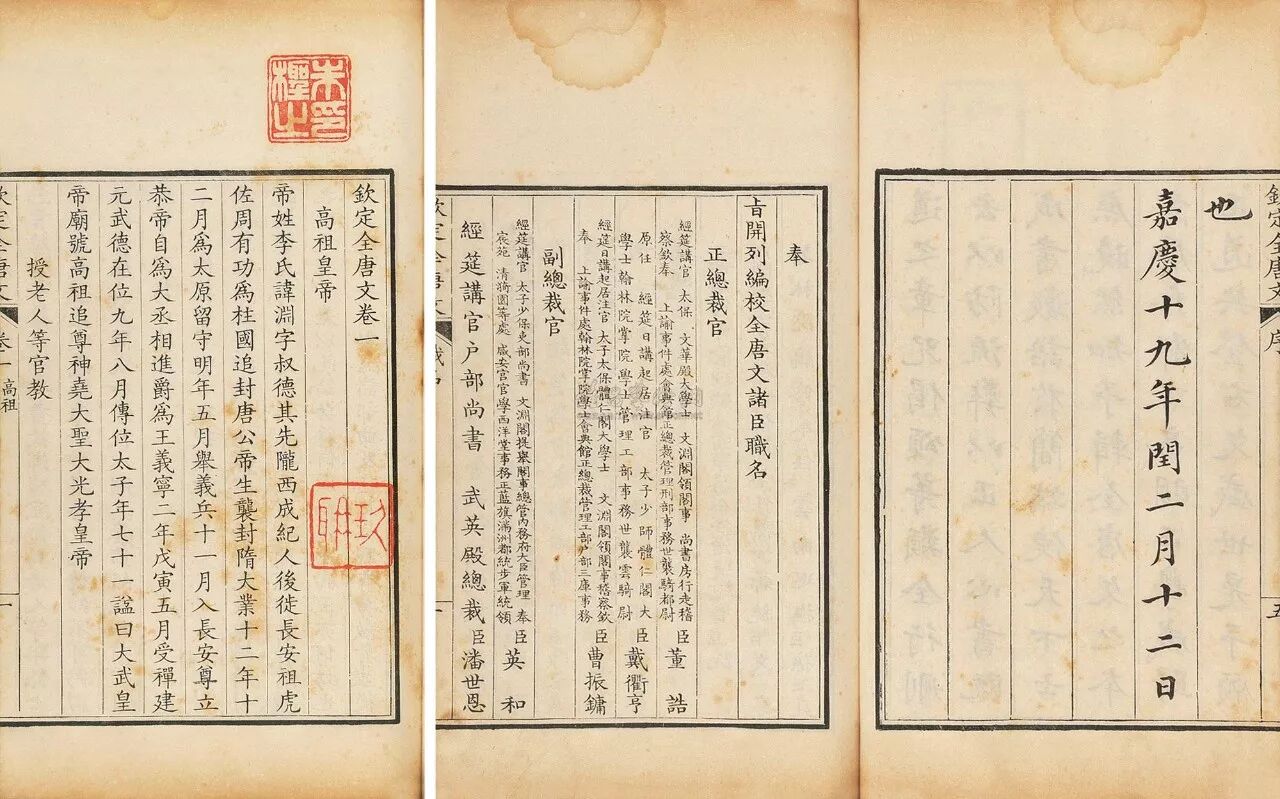 欽定全唐文 序 五
也
嘉慶十九年閏二月十二日
奉
旨開列編校全唐文諸臣職名
正總裁官
經筵講官 太保 文華殿大學士 文淵閣領閣事 尚書房行走稽
察欽奉 上諭事件處會典館正總裁管理刑部事務世襲騎都尉
臣董誥
原任 經筵日講起居注官 太子少師體仁閣大
學士翰林院掌院學士管理工部事務世襲雲騎尉
臣戴衢亨
經筵日講起居注官 太子太保體仁閣大學士 文淵閣領閣事稽察欽
奉 上諭事件處翰林院掌院學士會典館正總裁管理工部戶部三庫事務
臣曹振鏞
副總裁官
經筵講官 太子少保吏部尚書 文淵閣提舉閣事總管內務府大臣管理 奉
宸苑 清漪園等處 咸安宮官學西洋堂事務正藍旗滿洲都統步軍統領
臣英和
經筵講官戶部尚書 武英殿總裁臣潘世恩
欽定全唐文 職名 一
欽定全唐文卷一
高祖皇帝
帝姓李氏諱淵字叔德其先隴西成紀人後徙長安祖虎
佐周有功為柱國追封唐公帝生襲封隋大業十二年十
二月爲太原留守明年五月舉義兵十一月入長安尊立
恭帝自爲大丞相進爵爲王義寧二年戊寅五月受禪建
元武德在位九年八月傳位太子年七十一諡曰大武皇
帝廟號高祖追尊神堯大聖大光孝皇帝
授老人等官教
欽定全唐文 卷一 高祖 一
朱印
檉之
玖聃